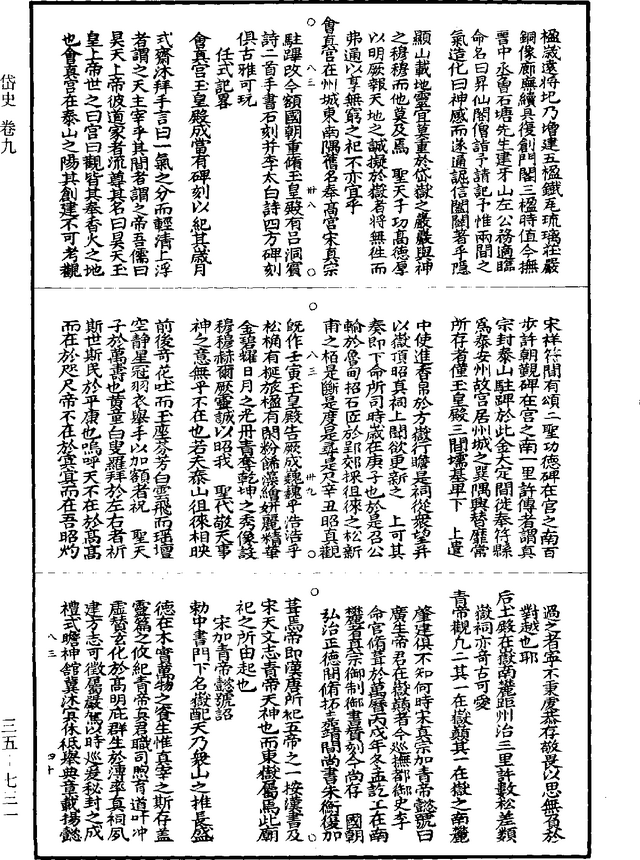 楹歲遠將圮乃增建五楹鐵瓦琉璃莊嚴
銅像廊廡續具復創門閣三楹時值今撫
晉中丞曹石塘先生建牙山左公務適臨
命名曰昇仙閣僧詣予請記予惟兩間之
氣造化曰神感而遂通誠信闔闢著乎隱
顯山載地靈宜莫重於岱嶽之巖巖與神
之穆穆而他莫及焉　聖天子功高德厚
以明厥報天地之誠擬於嶽者將無徃而
弗通以享無窮之祀不亦宜乎
會真宮在州城東南隅舊名奉高宮宋真宗
駐蹕改今額國朝重脩玉皇殿有呂洞賓
詩二首手書石刻并李太白詩四方碑刻
俱古雅可玩
任式記畧
會真宮玉皇殿成當有碑刻以紀其歲月
式齋沐拜手言曰一氣之分而輕清上浮
者謂之天主宰乎其間者謂之帝吾儒曰
昊天上帝彼道家者流尊其名曰昊天玉
皇上帝世之曰宮曰觀皆其奉香火之地
也會真宮在泰山之陽其創建不可考觀
八三　卅八
宋祥符間有頌二聖功德碑在宮之南百
步許朝覲碑在宮之南一里許傳者謂真
宗封泰山駐蹕於此金大定間徙奉符縣
爲泰安州故宮居州城之巽隅興替靡常
所存者僅玉皇殿三間壖基卑下　上遣
中使進香帛於方嶽行瞻是祠從衆望并
以嶽頂昭真祠上聞欲更新之　上可其
奏即下命所司時歲在庚子也於是召公
輸於魯甸招石匠於郢郊採徂徠之松新
甫之栢是斷是度是尋是尺辛丑昭真觀
旣作壬寅玉皇殿告厥成巍巍乎浩浩乎
松桷有梴旅楹有閑粉餙藻繪妍麗精華
金碧耀日月之光丹青奪乾坤之秀像設
穆穆赫爾厥靈誠以昭我　聖代敬天事
神之意無乎不在也若夫泰山徂徠相映
前後奇花吐而玉座芬芳白雲飛而瑤壇
空靜星冠羽衣舉手以加額者祝　聖天
子於萬壽也黄童白叟羅拜於左右者祈
斯世斯民於平康也嗚呼天不在於高高
而在於咫尺帝不在於冥冥而在吾昭灼
八三　卅九
過之者寧不秉虔恭存敬畏以思無負於
對越也耶
后土殿在嶽南麓距州治三里許數松差類
嶽祠亦奇古可愛
青帝觀凡二其一在嶽巔其一在嶽之南麓
肇建俱不知何時宋真宗加青帝懿號曰
廣生帝君在嶽巔者今巡撫都御史李
命官脩葺於萬曆丙戌年冬孟訖工在南
麓者真宗御制御書贊刻今尚存　國朝
弘治正德間脩拓嘉靖間尚書朱衡復加
葺焉帝即漢唐所祀五帝之一按漢書及
宋天文志青帝天神也而東嶽屬焉此廟
祀之所由起也
宋加青帝懿號詔
勑中書門下名嶽配天乃衆山之推長盛
德在木實萬物之資生惟真宰之斯存蓋
靈篇之攸紀青帝真君職司煦育道叶冲
虛贊玄化於高明庇群生於溥率真祠夙
建方志可徵屬嚴駕以時巡爰秘封之成
禮式瞻神舘冀沐冥休祗舉典章載揚懿
八三　四十
岱史　卷九
三五-七三一